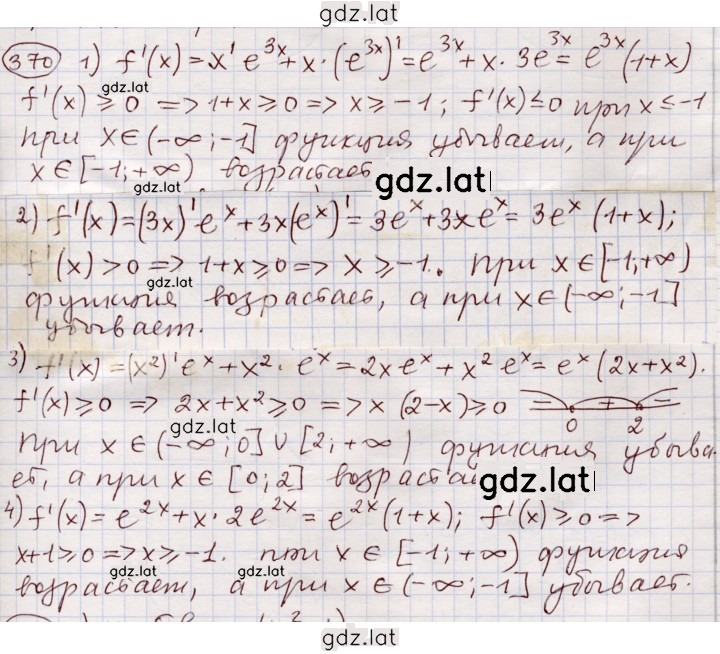 gdz.lat
370 1) f'(x) = x' e^{3x} + x · (e^{3x})' = e^{3x} + x · 3e^{3x} = e^{3x} (1+x)
gdz.lat
f'(x) ≥ 0 => 1+x ≥ 0 => x ≥ -1 ; f'(x) ≤ 0 при x ≤ -1
при x ∈ (-∞; -1] функция убывает, а при
x ∈ [-1; +∞) возрастает
gdz.lat gdz.lat
2) f'(x) = (3x)' e^x + 3x(e^x)' = 3e^x + 3xe^x = 3e^x (1+x);
f'(x) > 0 => 1+x ≥ 0 => x ≥ -1. при x ∈ [-1; +∞)
gdz.lat
функция возрастает, а при x ∈ (-∞; -1]
убывает.
3) f'(x) = (x^2)' e^x + x^2 · e^x = 2xe^x + x^2 e^x = e^x (2x + x^2).
f'(x) ≥ 0 => 2x + x^2 ≥ 0 => x (2-x) ≥ 0 − + −
0 2
gdz.lat
при x ∈ (-∞; 0] ∪ [2; +∞) функция убыва-
ет, а при x ∈ [0; 2] возрастает
gdz.lat
4) f'(x) = e^{2x} + x · 2e^{2x} = e^{2x} (1+x); f'(x) ≥ 0 =>
x+1 ≥ 0 => x ≥ -1. при x ∈ [-1; +∞) функция
gdz.lat
возрастает, а при x ∈ (-∞; -1] убывает.
gdz.lat